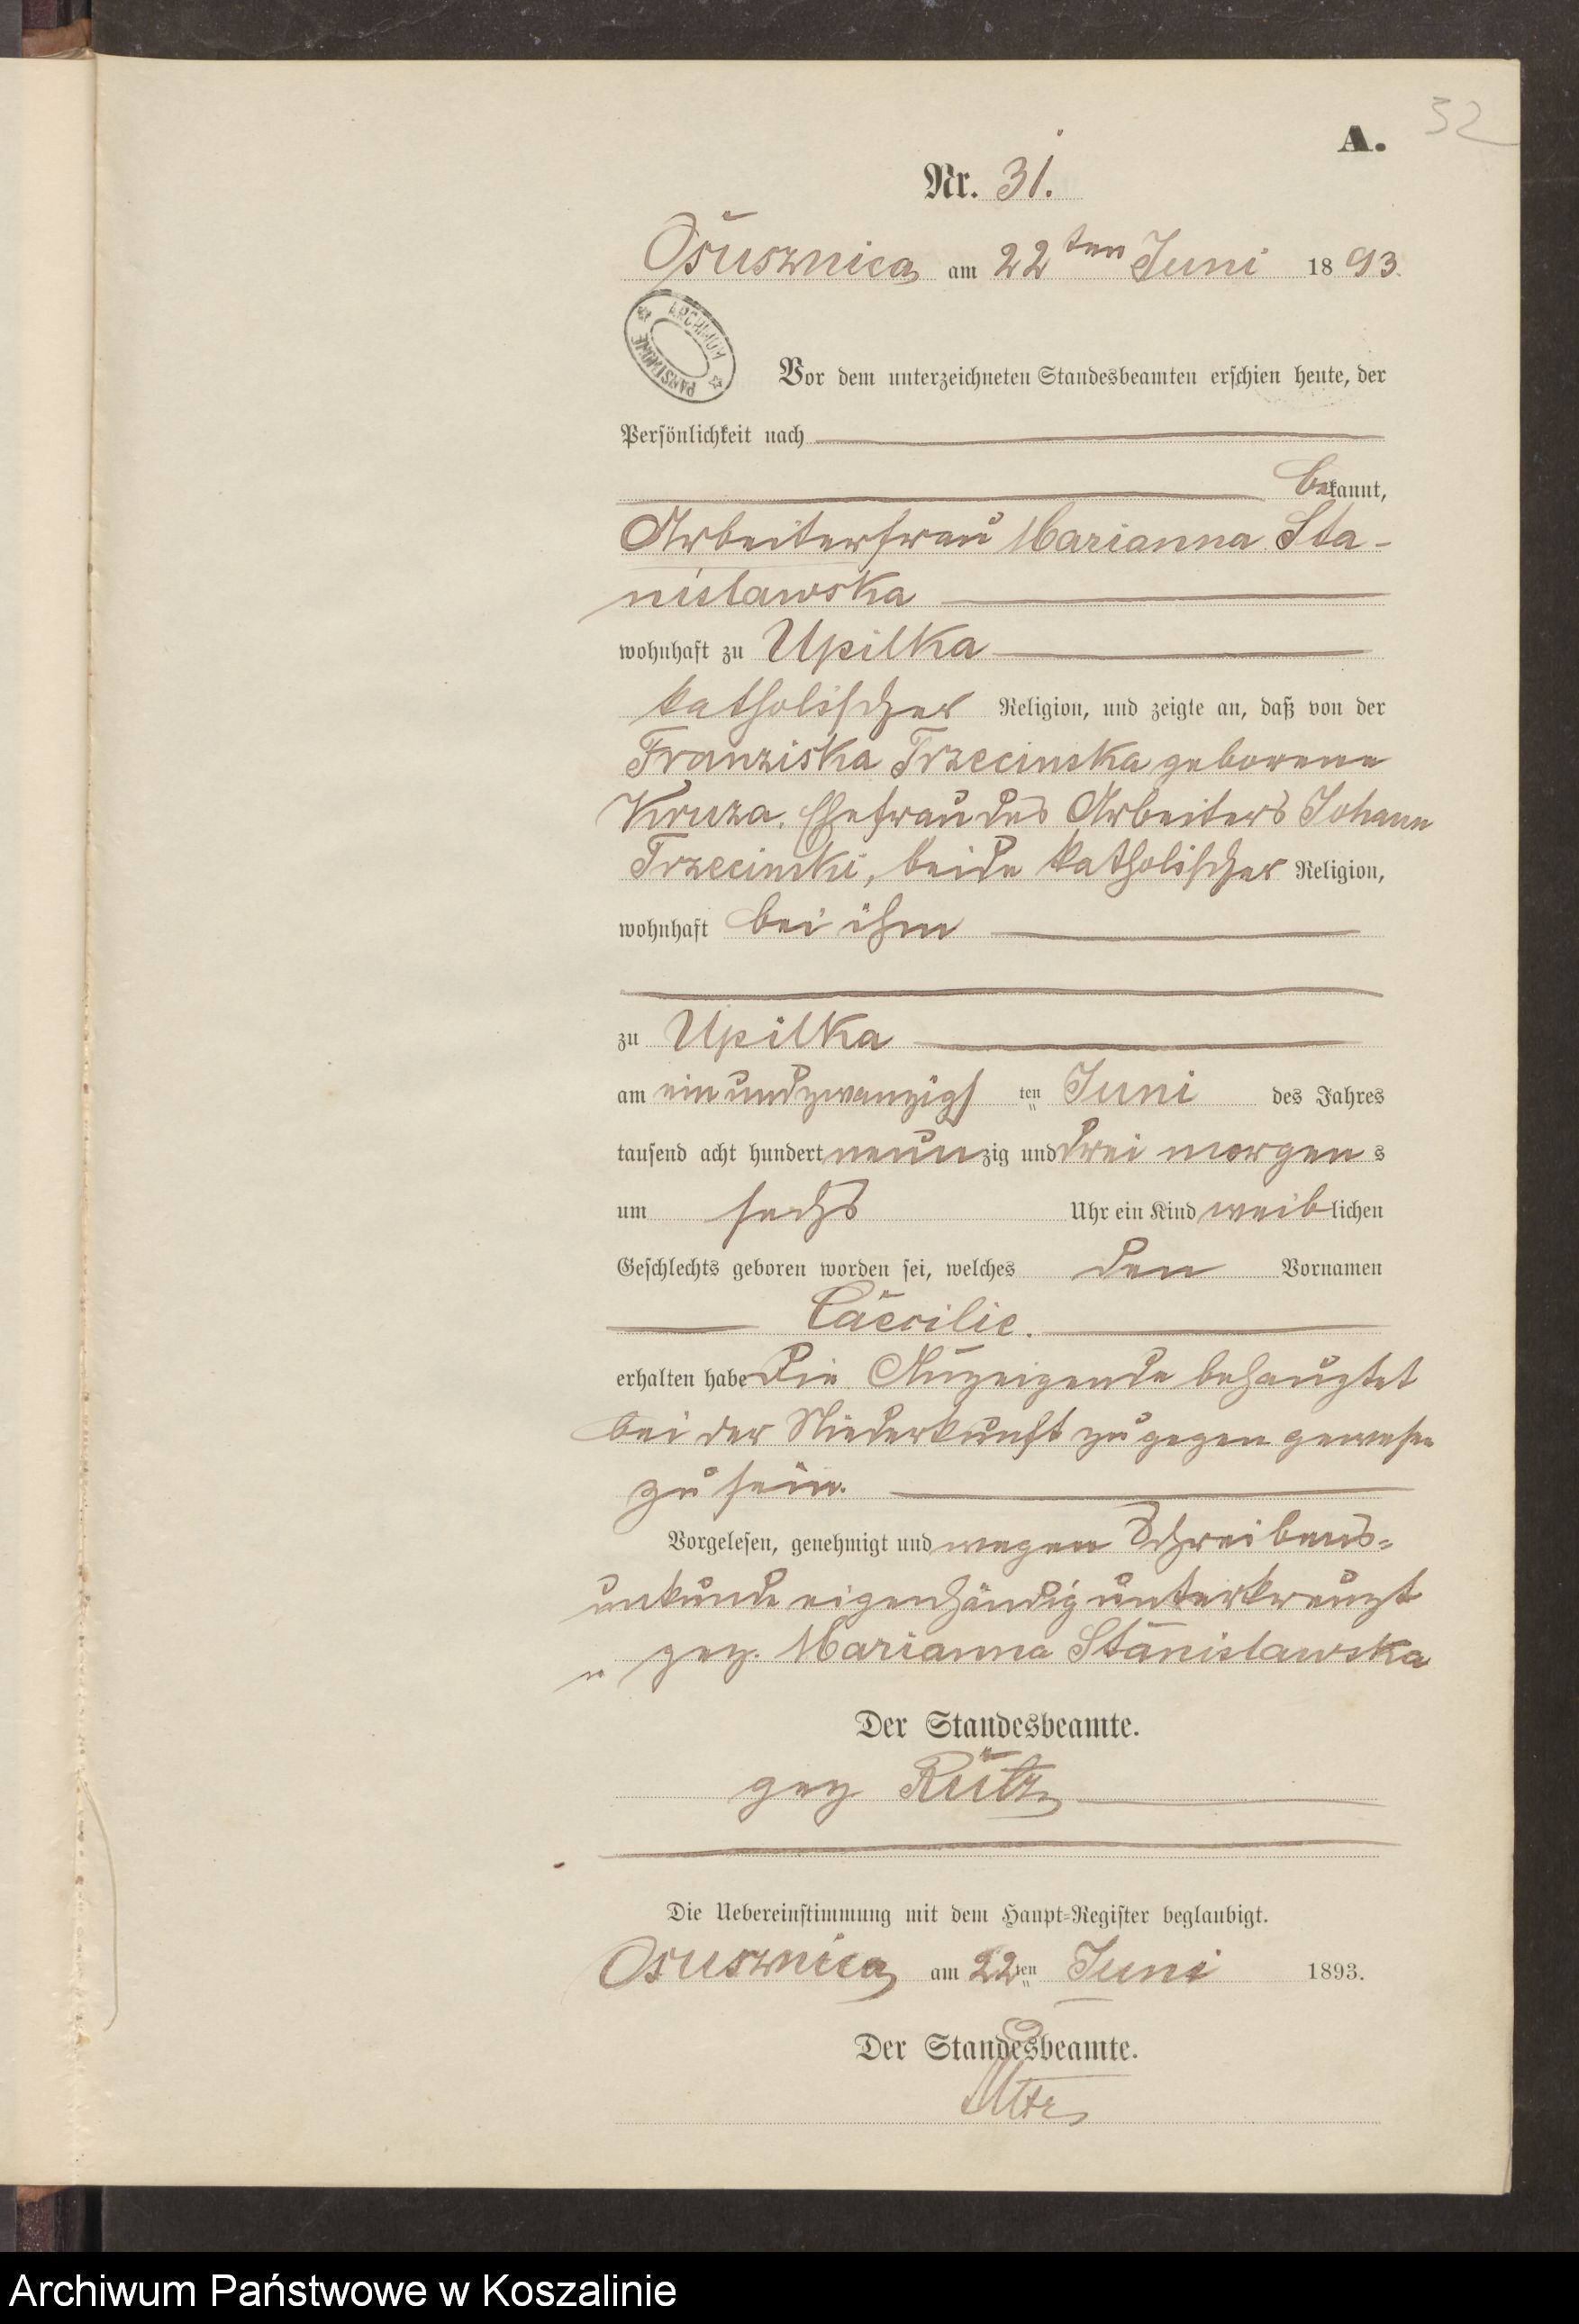 32
A.
Nr. 31.
Osusznica am 22ten Juni 1893.
ARCHIWUM PAŃSTWOWE
Vor dem unterzeichneten Standesbeamten erschien heute, der
Persönlichkeit nach
bekannt,
Arbeiterfrau Marianna Sta-
nislawska
wohnhaft zu Upilka
katholischer Religion, und zeigte an, daß von der
Franziska Trzecinska geborene
Kruza, Ehefrau des Arbeiters Johann
Trzecinski, beide katholischer Religion,
wohnhaft bei ihm
zu Upilka
am einundzwanzigsten Juni des Jahres
tausend acht hundert neunzig und drei morgens
um sechs Uhr ein Kind weiblichen
Geschlechts geboren worden sei, welches den Vornamen
Cäcilie.
erhalten habe Die Anzeigende behauptet
bei der Niederkunft zugegen gewesen
zu sein.
Vorgelesen, genehmigt und wegen Schreibens-
unkunde eigenhändig unterkreuzt
gez. Marianna Stanislawska
Der Standesbeamte.
gez Rütz
Die Uebereinstimmung mit dem Haupt-Register beglaubigt.
Osusznica am 22ten Juni 1893.
Der Standesbeamte.
Archiwum Państwowe w Koszalinie